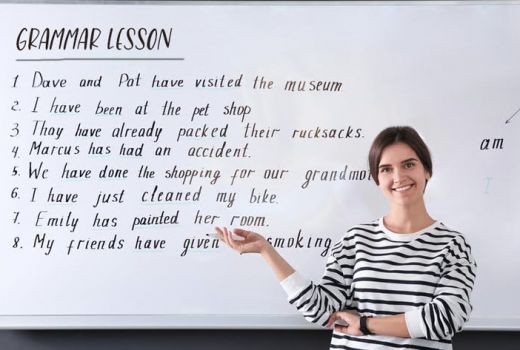 GRAMMAR LESSON
1 Dave and Pat have visited the museum
2. I have been at the pet shop
3 Thay have already packed their rucksacks.
4. Marcus has had an accident.
5. We have done the shopping for our
6. I have just cleaned my bike.
7. Emily has painted her room.
8. My friends have given smoking
am